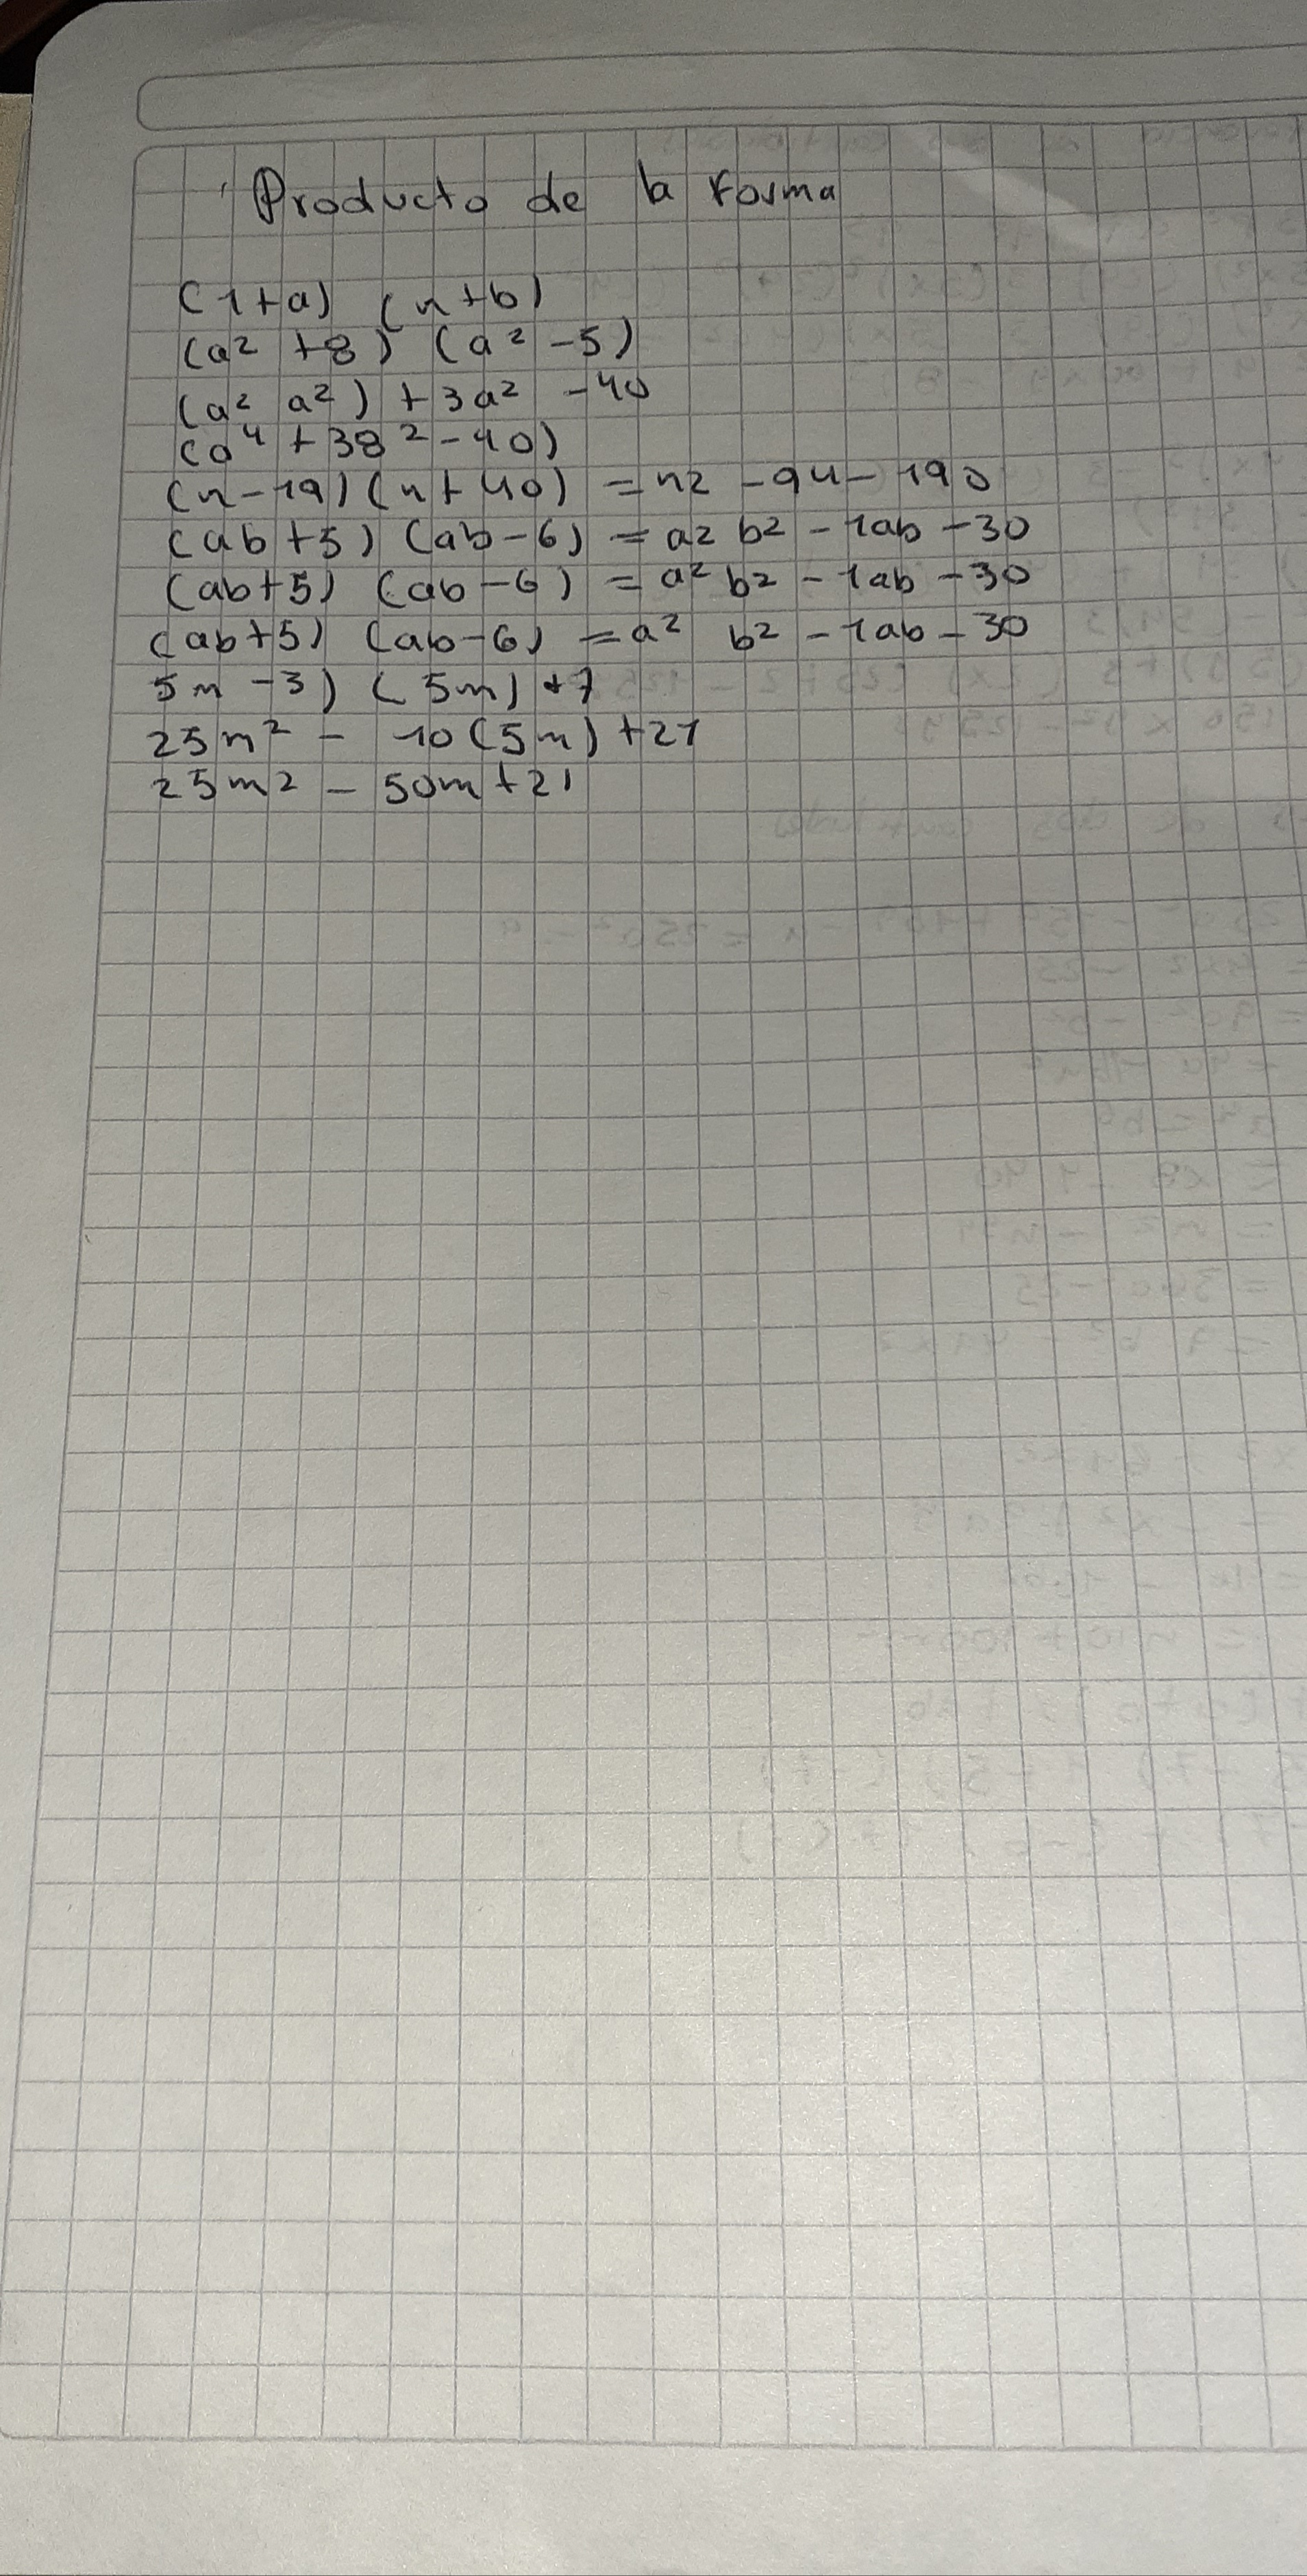 Producto de la forma
(1+a) (n+b)
(a² +8) (a² -5)
(a² a²) + 3a² -40
(a⁴ + 38² -40)
(n-19) (n+40) = n2 -94- 190
(ab+5) (ab-6) = a2 b² - 1ab -30
(ab+5) (ab-6) = a² b2 - 1ab -30
(ab+5) (ab-6) = a² b² - 1ab - 30
5m -3) (5m) +7
25m² - 10(5m) +21
25m2 - 50m +21